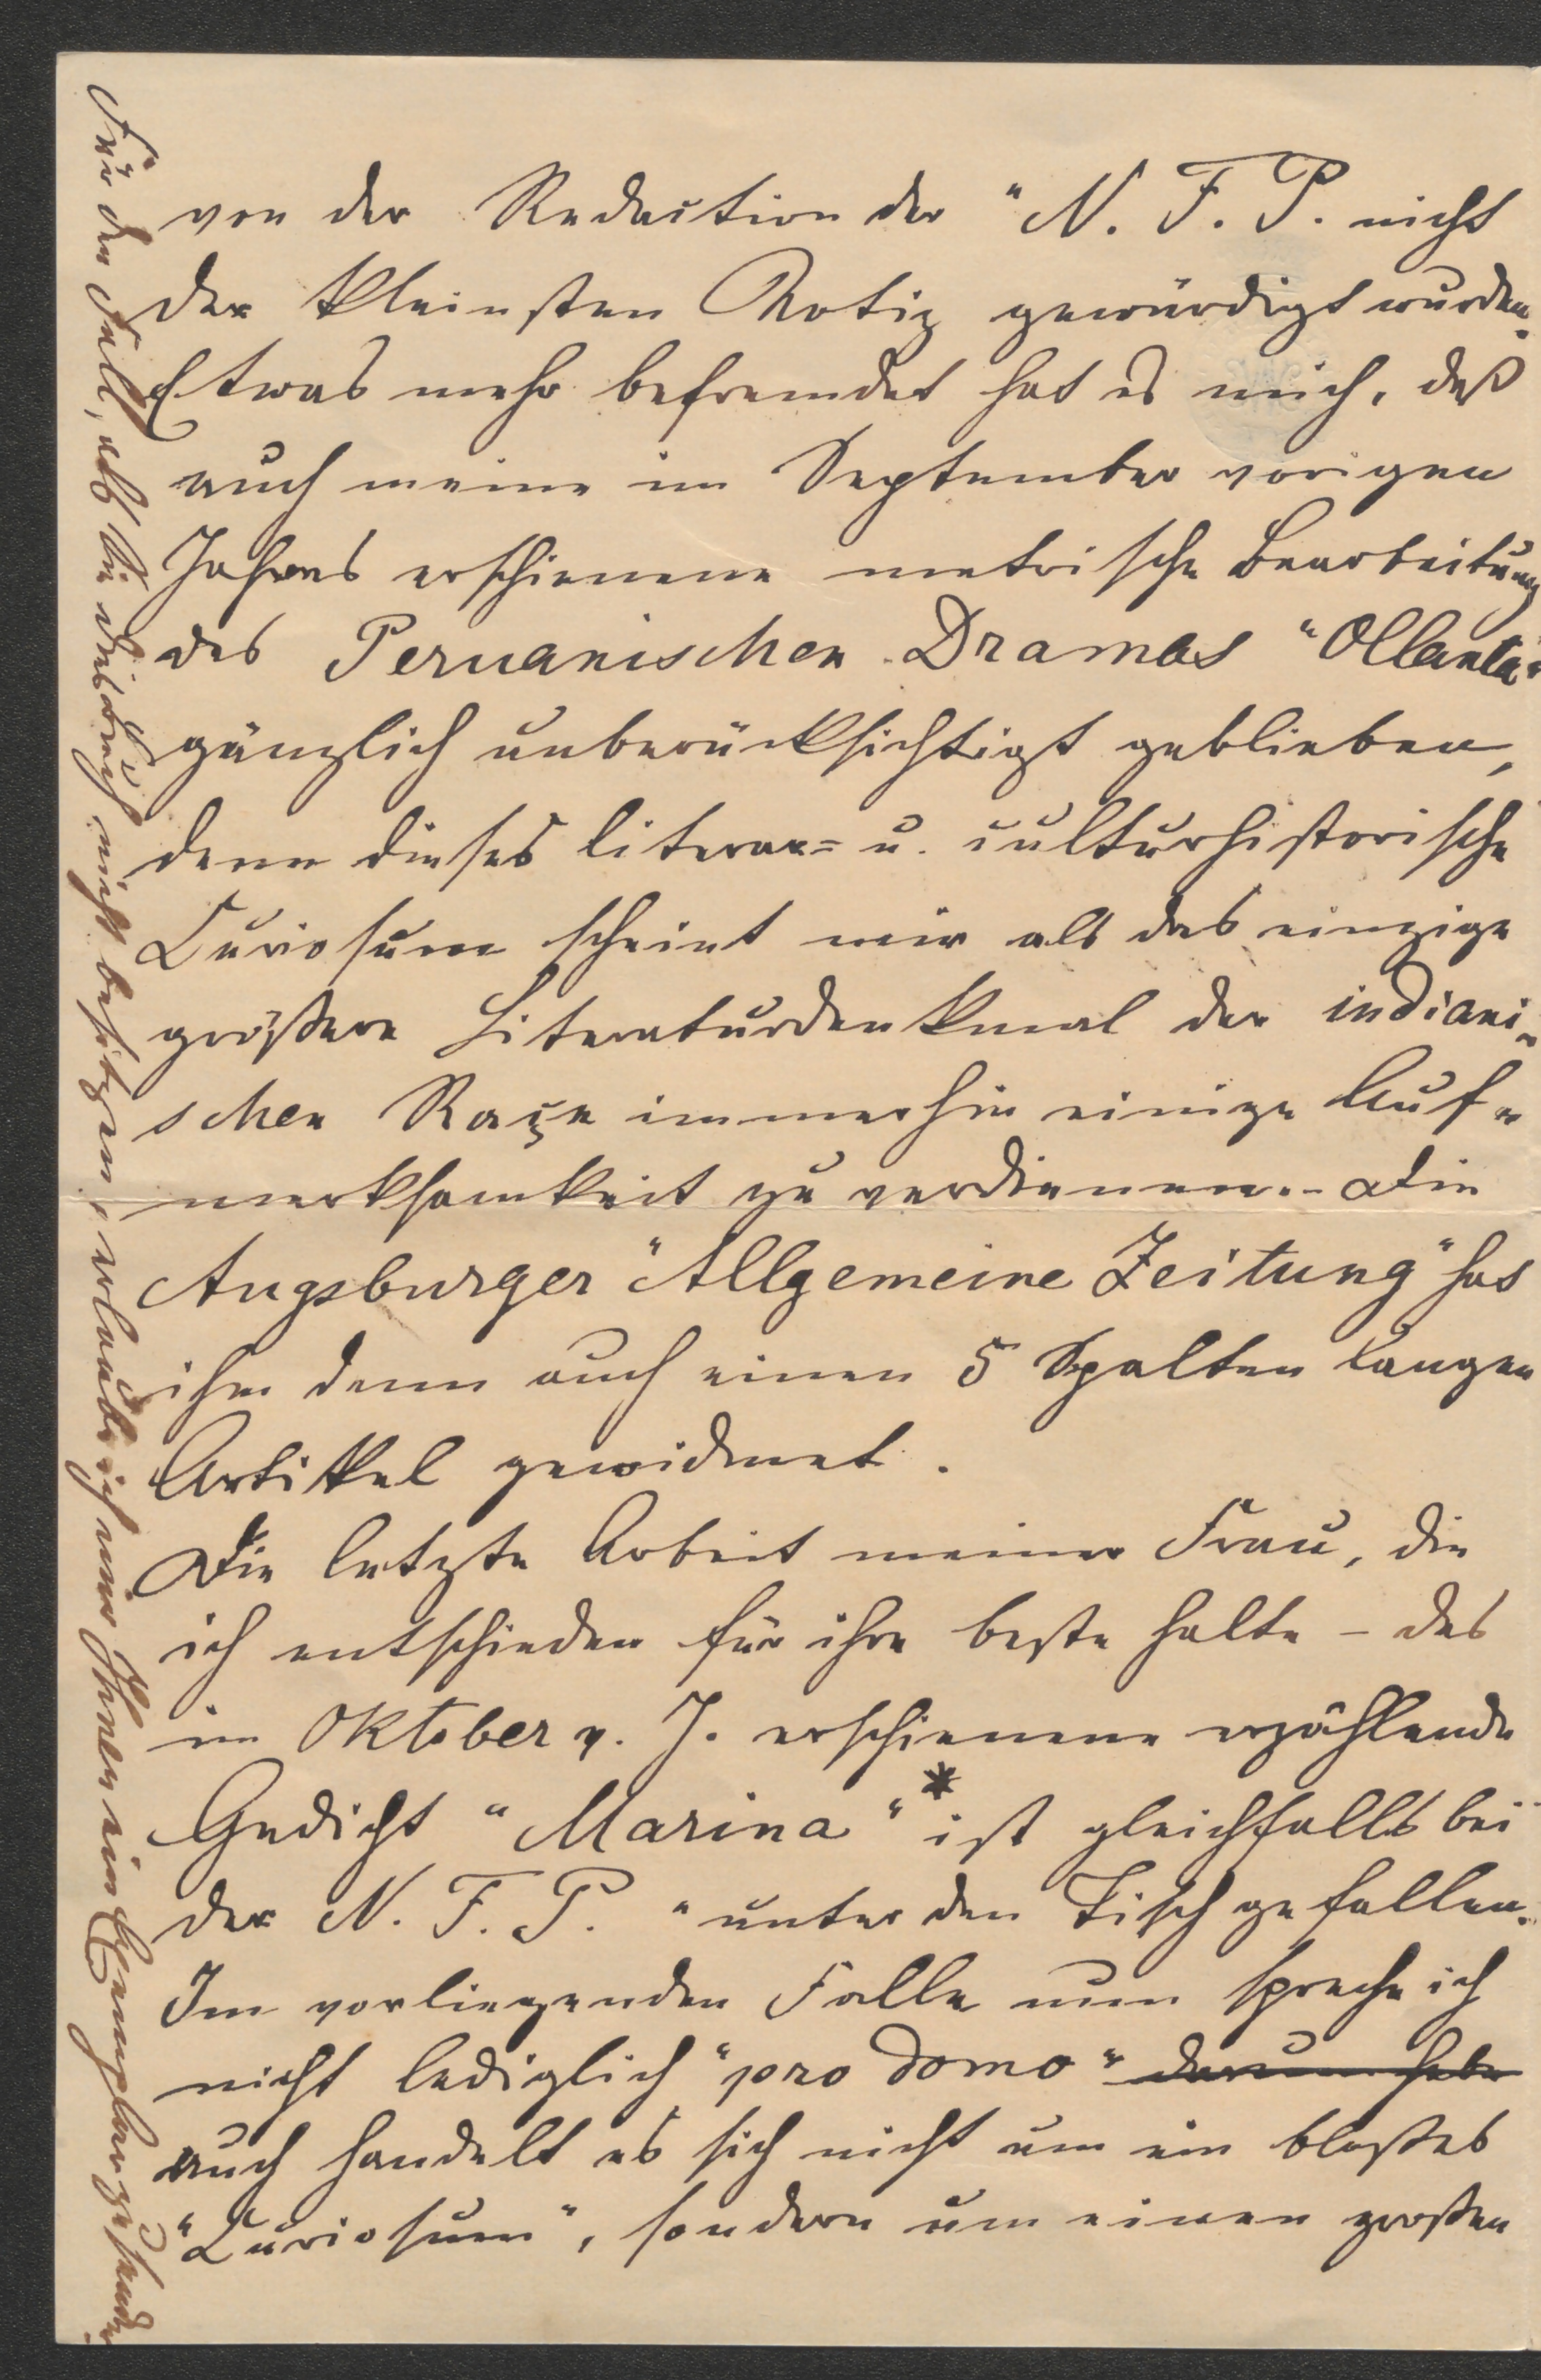 von der Redaction der "N. F. P. nicht
der kleinsten Notiz gewürdigt wurden.
Etwas mehr befremdet hat es mich, daß
auch meine im September vorigen
Jahres erschienene metrische Bearbeitung
des Peruanischen Dramas "Ollanta"
gänzlich unberücksichtigt geblieben,
denn dieses literar= u. culturhistorische
Curiosum scheint mir als das einzige
größere Literaturdenkmal der indiani-
schen Raçe immerhin einige Auf-
merksamkeit zu verdienen.- Die
Augsburger "Allgemeine Zeitung" hat
ihm denn auch einen 5 Spalten langen
Artikel gewidmet.
Die letzte Arbeit meiner Frau, die
ich entschieden für ihre beste halte – das
im Oktober v. J. erschienene erzählende
Gedicht "Marina"* ist gleichfalls bei
der N. F. P. "unter den Tisch gefallen.
Im vorliegenden Falle nun spreche ich
nicht lediglich "pro domo" darum habe
auch handelt es sich nicht um ein bloßes
"Curiosum", sondern um einen großen
Für den Fall, als Sie dasselbe nicht besitzen, erlaube ich mir Ihnen ein Exemplar zu senden.